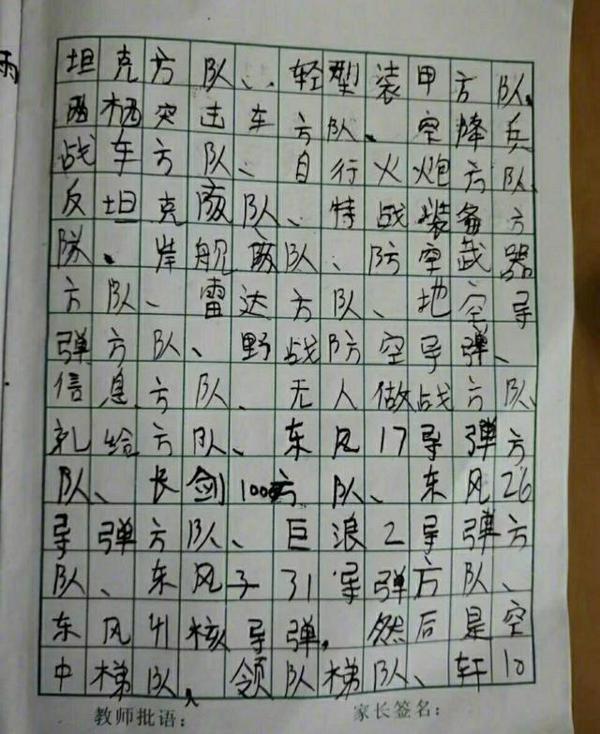 坦克方队、轻型装甲方队、
两栖突击车方队、空降兵
战车方队、自行火炮方队、
反坦克方队、特战装备方
队、岸舰方队、防空武器
方队、雷达方队、地空导
弹方队、野战防空导弹、
信息方队、无人做战方队、
给方队、东风17导弹方
队、长剑100方队、东风26
导弹方队、巨浪2导弹方
队、东风31导弹方队、
东风41核导弹,然后是空
中梯队、领队梯队、轩10
教师批语: 家长签名: